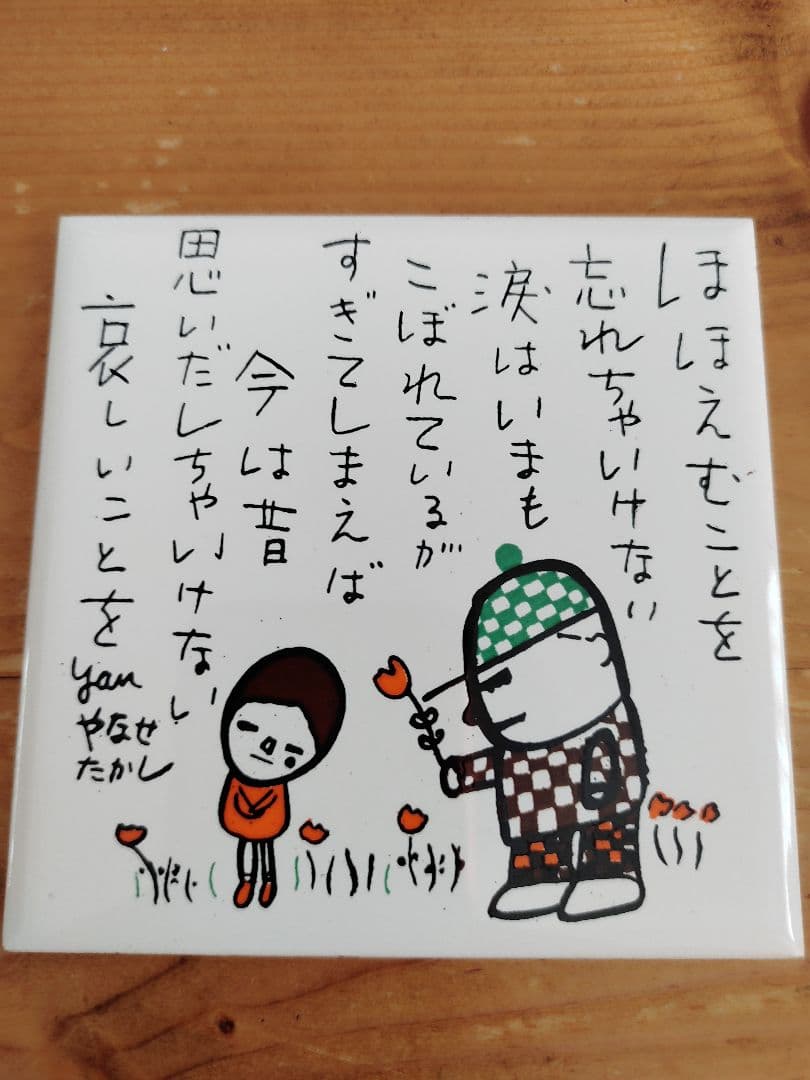 ほほえむことを
忘れちゃいけない
涙はいまも
こぼれているが
すぎてしまえば
今は昔
思いだしちゃいけない
哀しいことを
yan
やなせ
たかし